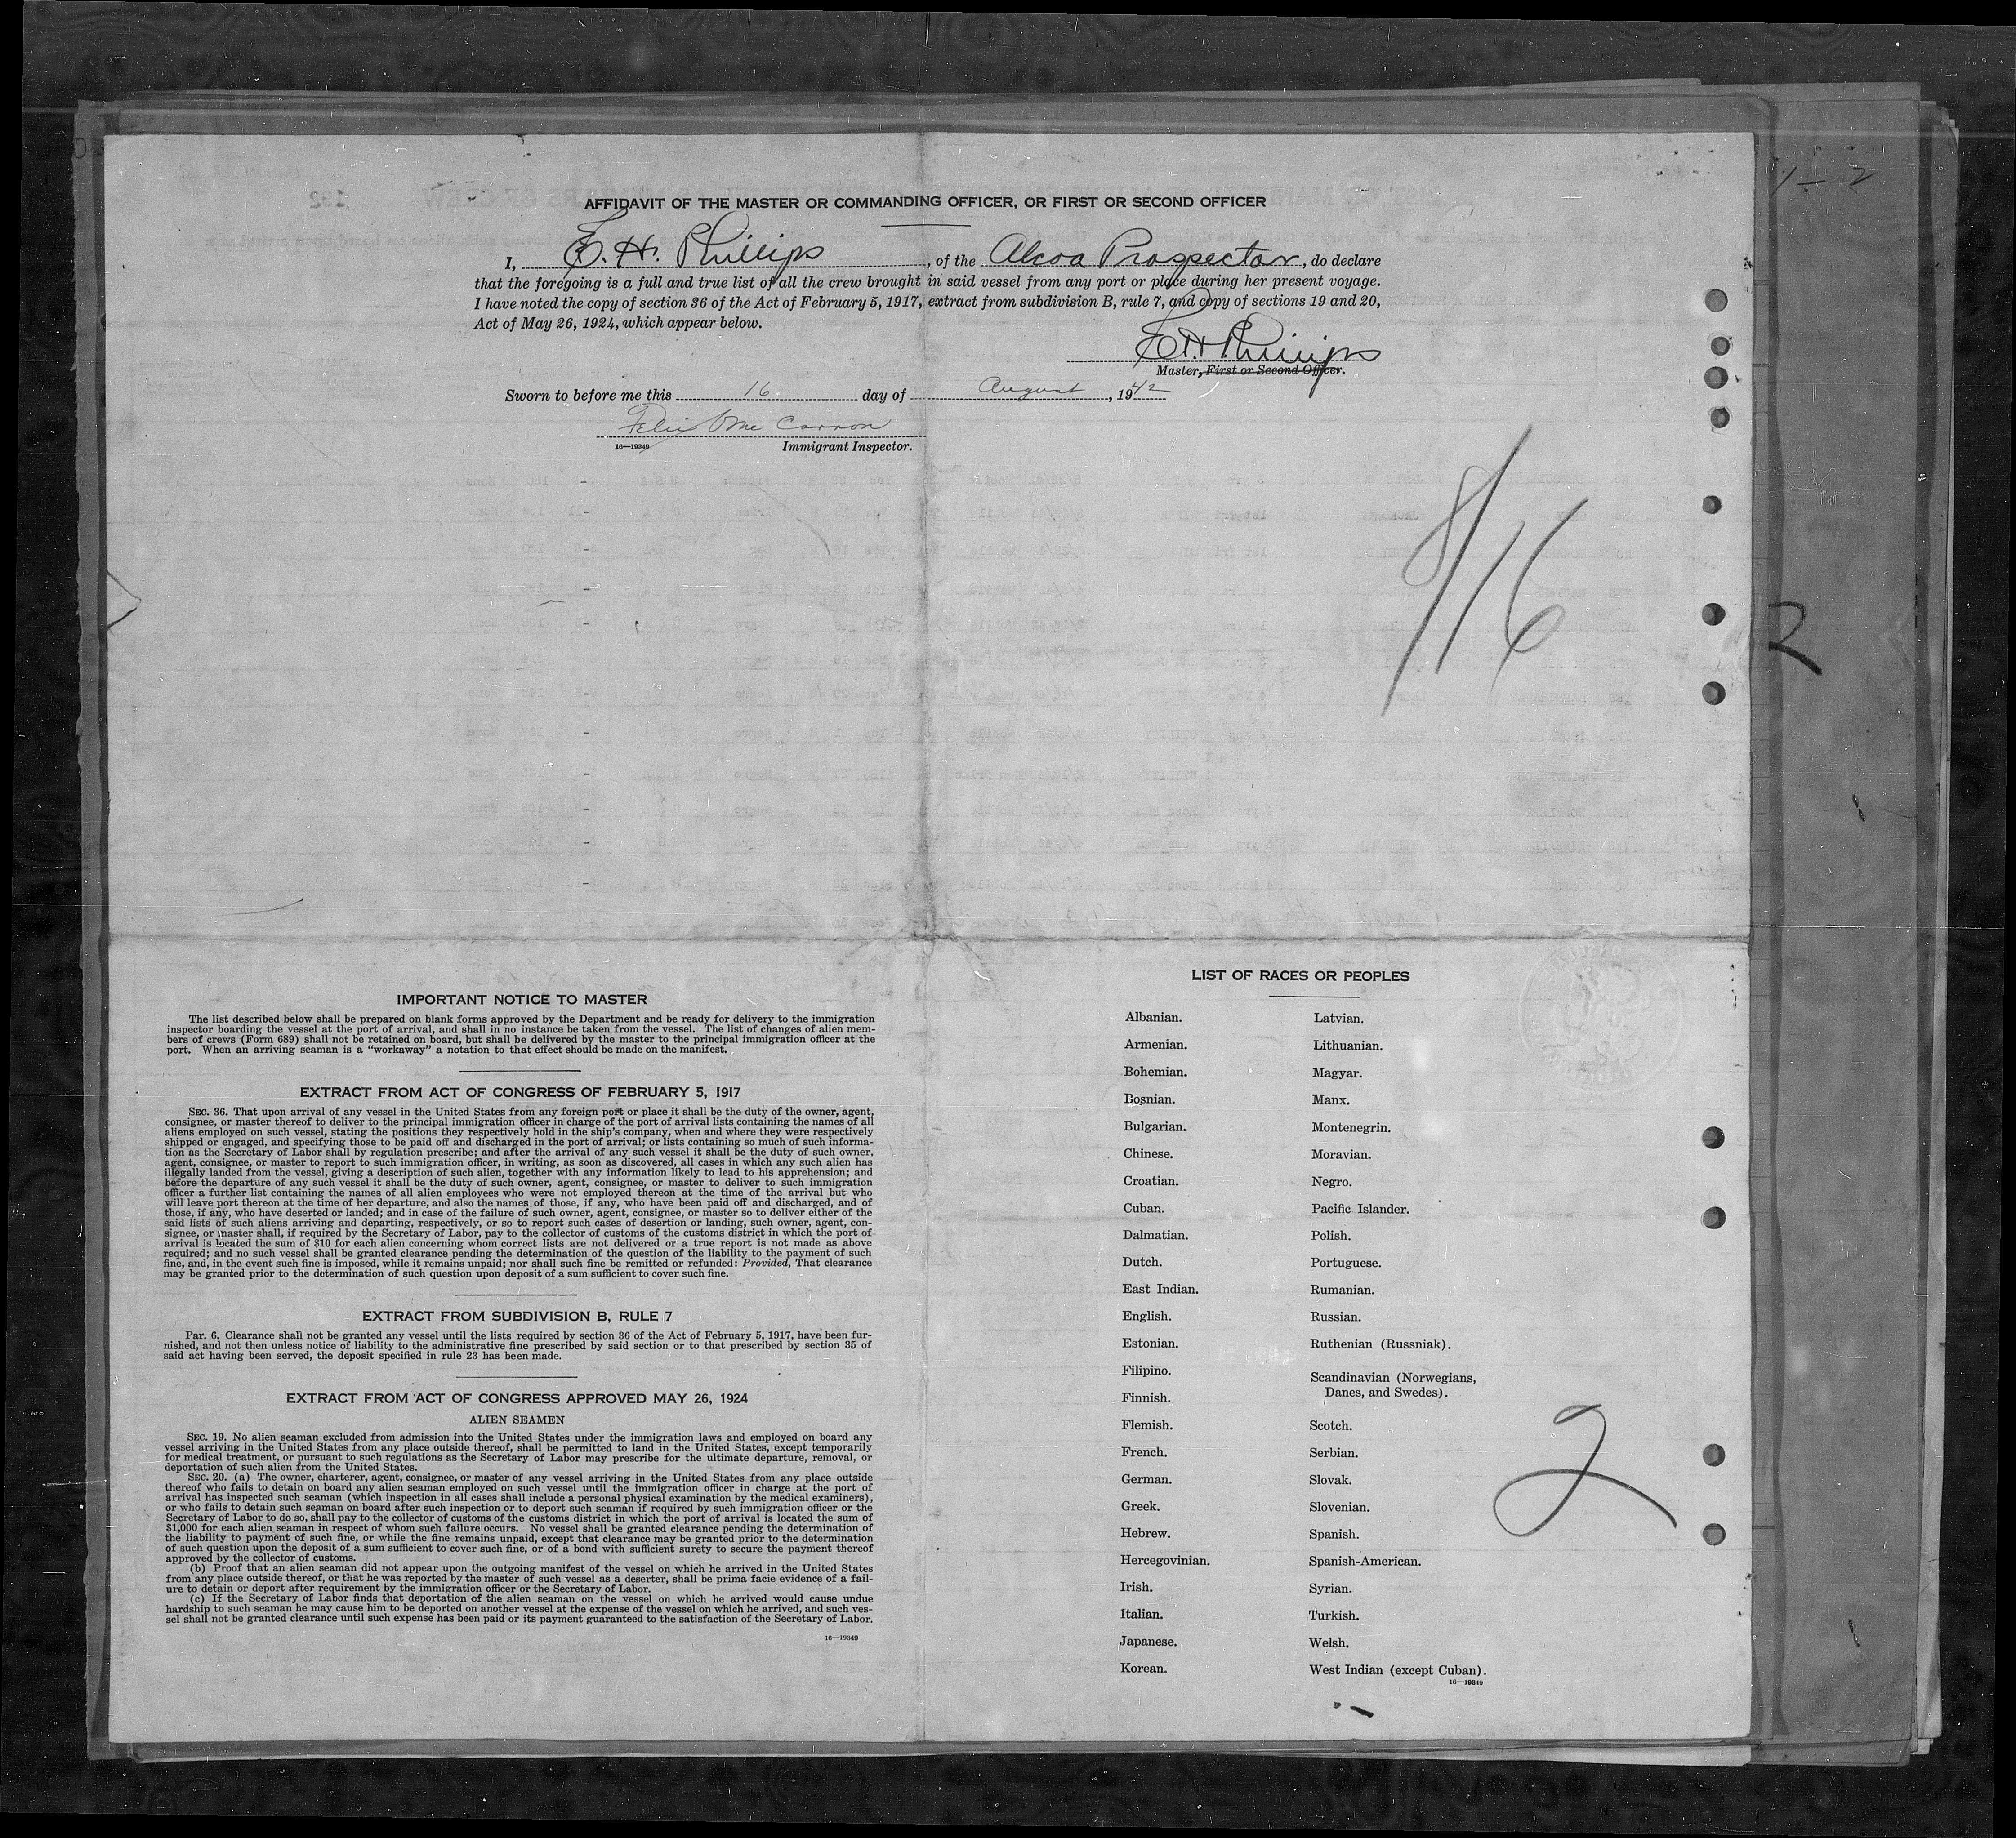 AFFIDAVIT OF THE MASTER OR COMMANDING OFFICER, OR FIRST OR SECOND OFFICER
I, E. H. Phillips, of the Alcoa Prospector, do declare
that the foregoing is a full and true list of all the crew brought in said vessel from any port or place during her present voyage.
I have noted the copy of section 36 of the Act of February 5, 1917, extract from subdivision B, rule 7, and copy of sections 19 and 20,
Act of May 26, 1924, which appear below.
E H Phillips
Master, First or Second Officer.
Sworn to before me this 16 day of August, 1942
Mc Carron
16—19349 Immigrant Inspector.
8/16
IMPORTANT NOTICE TO MASTER
The list described below shall be prepared on blank forms approved by the Department and be ready for delivery to the immigration
inspector boarding the vessel at the port of arrival, and shall in no instance be taken from the vessel. The list of changes of alien mem-
bers of crews (Form 689) shall not be retained on board, but shall be delivered by the master to the principal immigration officer at the
port. When an arriving seaman is a "workaway" a notation to that effect should be made on the manifest.
EXTRACT FROM ACT OF CONGRESS OF FEBRUARY 5, 1917
SEC. 36. That upon arrival of any vessel in the United States from any foreign port or place it shall be the duty of the owner, agent,
consignee, or master thereof to deliver to the principal immigration officer in charge of the port of arrival lists containing the names of all
aliens employed on such vessel, stating the positions they respectively hold in the ship's company, when and where they were respectively
shipped or engaged, and specifying those to be paid off and discharged in the port of arrival; or lists containing so much of such informa-
tion as the Secretary of Labor shall by regulation prescribe; and after the arrival of any such vessel it shall be the duty of such owner,
agent, consignee, or master to report to such immigration officer, in writing, as soon as discovered, all cases in which any such alien has
illegally landed from the vessel, giving a description of such alien, together with any information likely to lead to his apprehension; and
before the departure of any such vessel it shall be the duty of such owner, agent, consignee, or master to deliver to such immigration
officer a further list containing the names of all alien employees who were not employed thereon at the time of the arrival but who
will leave port thereon at the time of her departure, and also the names of those, if any, who have been paid off and discharged, and of
those, if any, who have deserted or landed; and in case of the failure of such owner, agent, consignee, or master so to deliver either of the
said lists of such aliens arriving and departing, respectively, or so to report such cases of desertion or landing, such owner, agent, con-
signee, or master shall, if required by the Secretary of Labor, pay to the collector of customs of the customs district in which the port of
arrival is located the sum of $10 for each alien concerning whom correct lists are not delivered or a true report is not made as above
required; and no such vessel shall be granted clearance pending the determination of the question of the liability to the payment of such
fine, and, in the event such fine is imposed, while it remains unpaid; nor shall such fine be remitted or refunded: Provided, That clearance
may be granted prior to the determination of such question upon deposit of a sum sufficient to cover such fine.
EXTRACT FROM SUBDIVISION B, RULE 7
Par. 6. Clearance shall not be granted any vessel until the lists required by section 36 of the Act of February 5, 1917, have been fur-
nished, and not then unless notice of liability to the administrative fine prescribed by said section or to that prescribed by section 35 of
said act having been served, the deposit specified in rule 23 has been made.
EXTRACT FROM ACT OF CONGRESS APPROVED MAY 26, 1924
ALIEN SEAMEN
SEC. 19. No alien seaman excluded from admission into the United States under the immigration laws and employed on board any
vessel arriving in the United States from any place outside thereof, shall be permitted to land in the United States, except temporarily
for medical treatment, or pursuant to such regulations as the Secretary of Labor may prescribe for the ultimate departure, removal, or
deportation of such alien from the United States.
SEC. 20. (a) The owner, charterer, agent, consignee, or master of any vessel arriving in the United States from any place outside
thereof who fails to detain on board any alien seaman employed on such vessel until the immigration officer in charge at the port of
arrival has inspected such seaman (which inspection in all cases shall include a personal physical examination by the medical examiners),
or who fails to detain such seaman on board after such inspection or to deport such seaman if required by such immigration officer or the
Secretary of Labor to do so, shall pay to the collector of customs of the customs district in which the port of arrival is located the sum of
$1,000 for each alien seaman in respect of whom such failure occurs. No vessel shall be granted clearance pending the determination of
the liability to payment of such fine, or while the fine remains unpaid, except that clearance may be granted prior to the determination
of such question upon the deposit of a sum sufficient to cover such fine, or of a bond with sufficient surety to secure the payment thereof
approved by the collector of customs.
(b) Proof that an alien seaman did not appear upon the outgoing manifest of the vessel on which he arrived in the United States
from any place outside thereof, or that he was reported by the master of such vessel as a deserter, shall be prima facie evidence of a fail-
ure to detain or deport after requirement by the immigration officer or the Secretary of Labor.
(c) If the Secretary of Labor finds that deportation of the alien seaman on the vessel on which he arrived would cause undue
hardship to such seaman he may cause him to be deported on another vessel at the expense of the vessel on which he arrived, and such ves-
sel shall not be granted clearance until such expense has been paid or its payment guaranteed to the satisfaction of the Secretary of Labor.
16—19349
LIST OF RACES OR PEOPLES
Albanian.
Armenian.
Bohemian.
Bosnian.
Bulgarian.
Chinese.
Croatian.
Cuban.
Dalmatian.
Dutch.
East Indian.
English.
Estonian.
Filipino.
Finnish.
Flemish.
French.
German.
Greek.
Hebrew.
Hercegovinian.
Irish.
Italian.
Japanese.
Korean.
Latvian.
Lithuanian.
Magyar.
Manx.
Montenegrin.
Moravian.
Negro.
Pacific Islander.
Polish.
Portuguese.
Rumanian.
Russian.
Ruthenian (Russniak).
Scandinavian (Norwegians,
Danes, and Swedes).
Scotch.
Serbian.
Slovak.
Slovenian.
Spanish.
Spanish-American.
Syrian.
Turkish.
Welsh.
West Indian (except Cuban).
16—19349
2
1-2
2